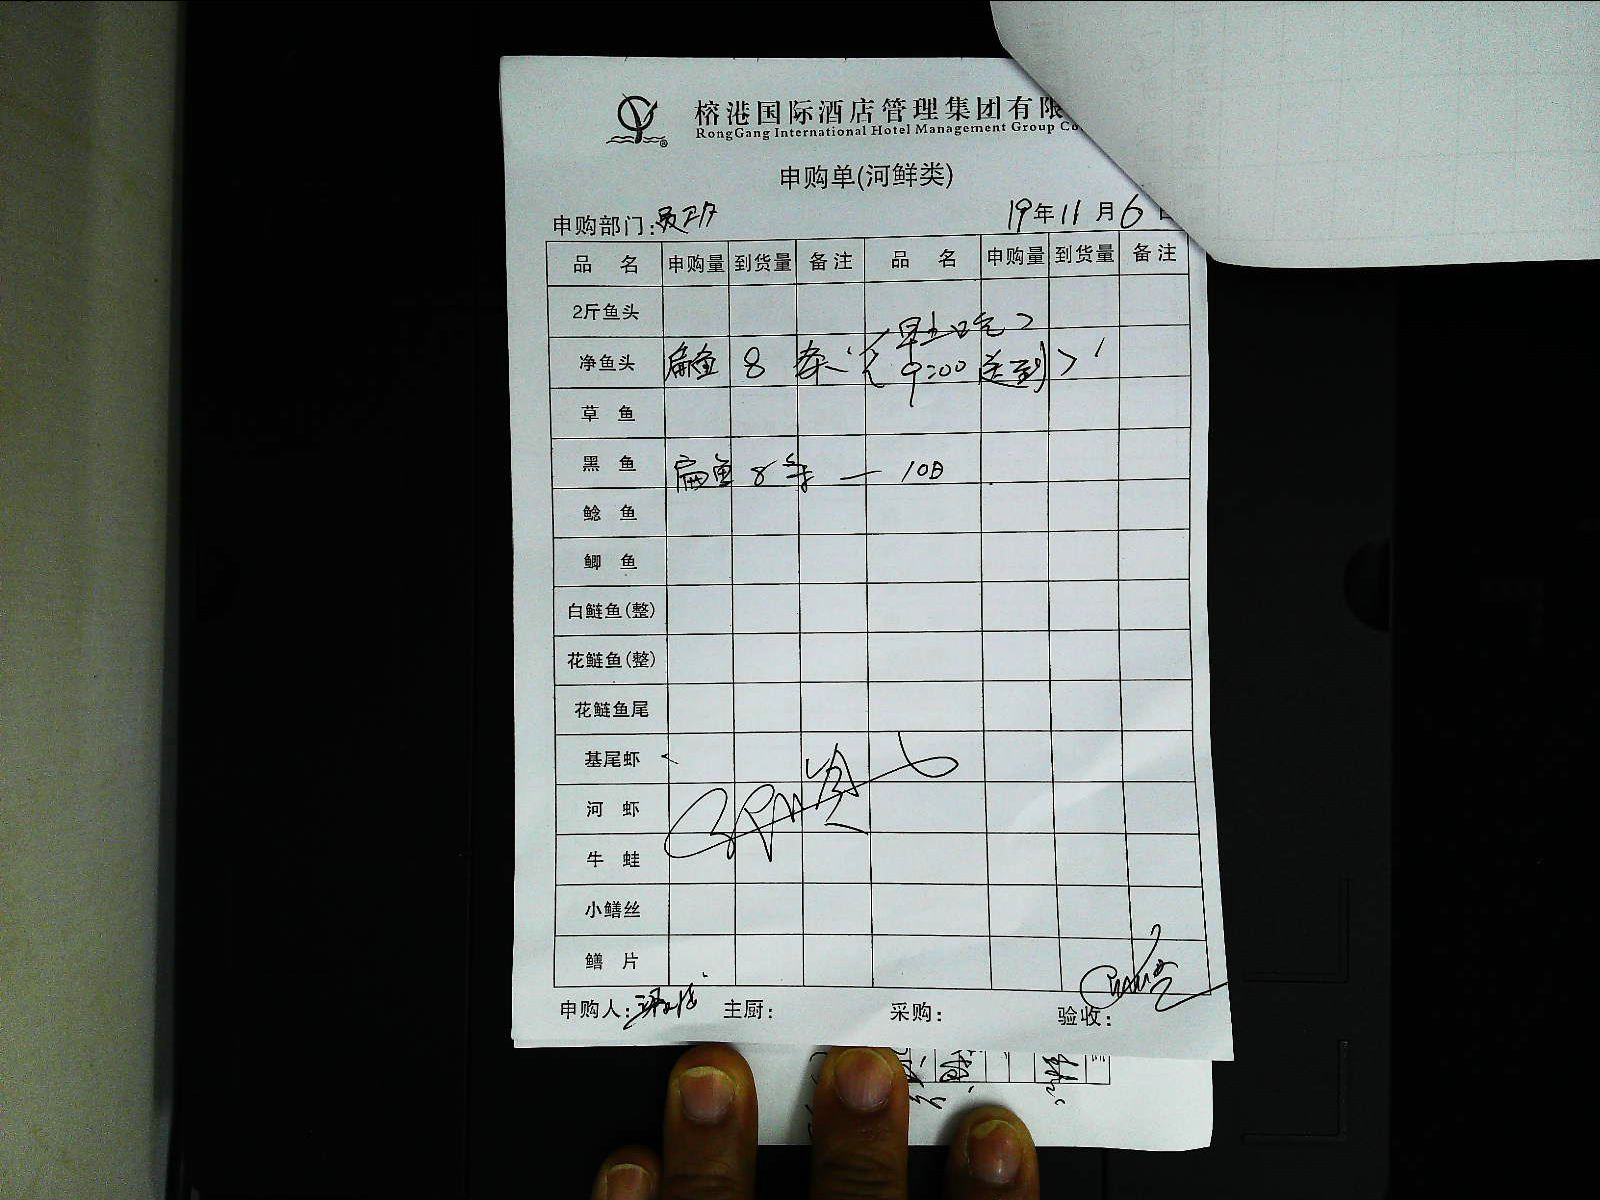 榕港国际酒店管理集团有限
RongGang International Hotel Management Group Co
申购单(河鲜类)
申购部门: 19年11月6日
品 名 申购量 到货量 备注 品 名 申购量 到货量 备注
2斤鱼头
净鱼头 扁鱼 8 条 9:00 送到
草 鱼
黑 鱼 扁鱼 8 条 — 10日
鲶 鱼
鲫 鱼
白鲢鱼(整)
花鲢鱼(整)
花鲢鱼尾
基尾虾
河 虾
牛 蛙
小鳝丝
鳝 片
申购人: 主厨: 采购: 验收: